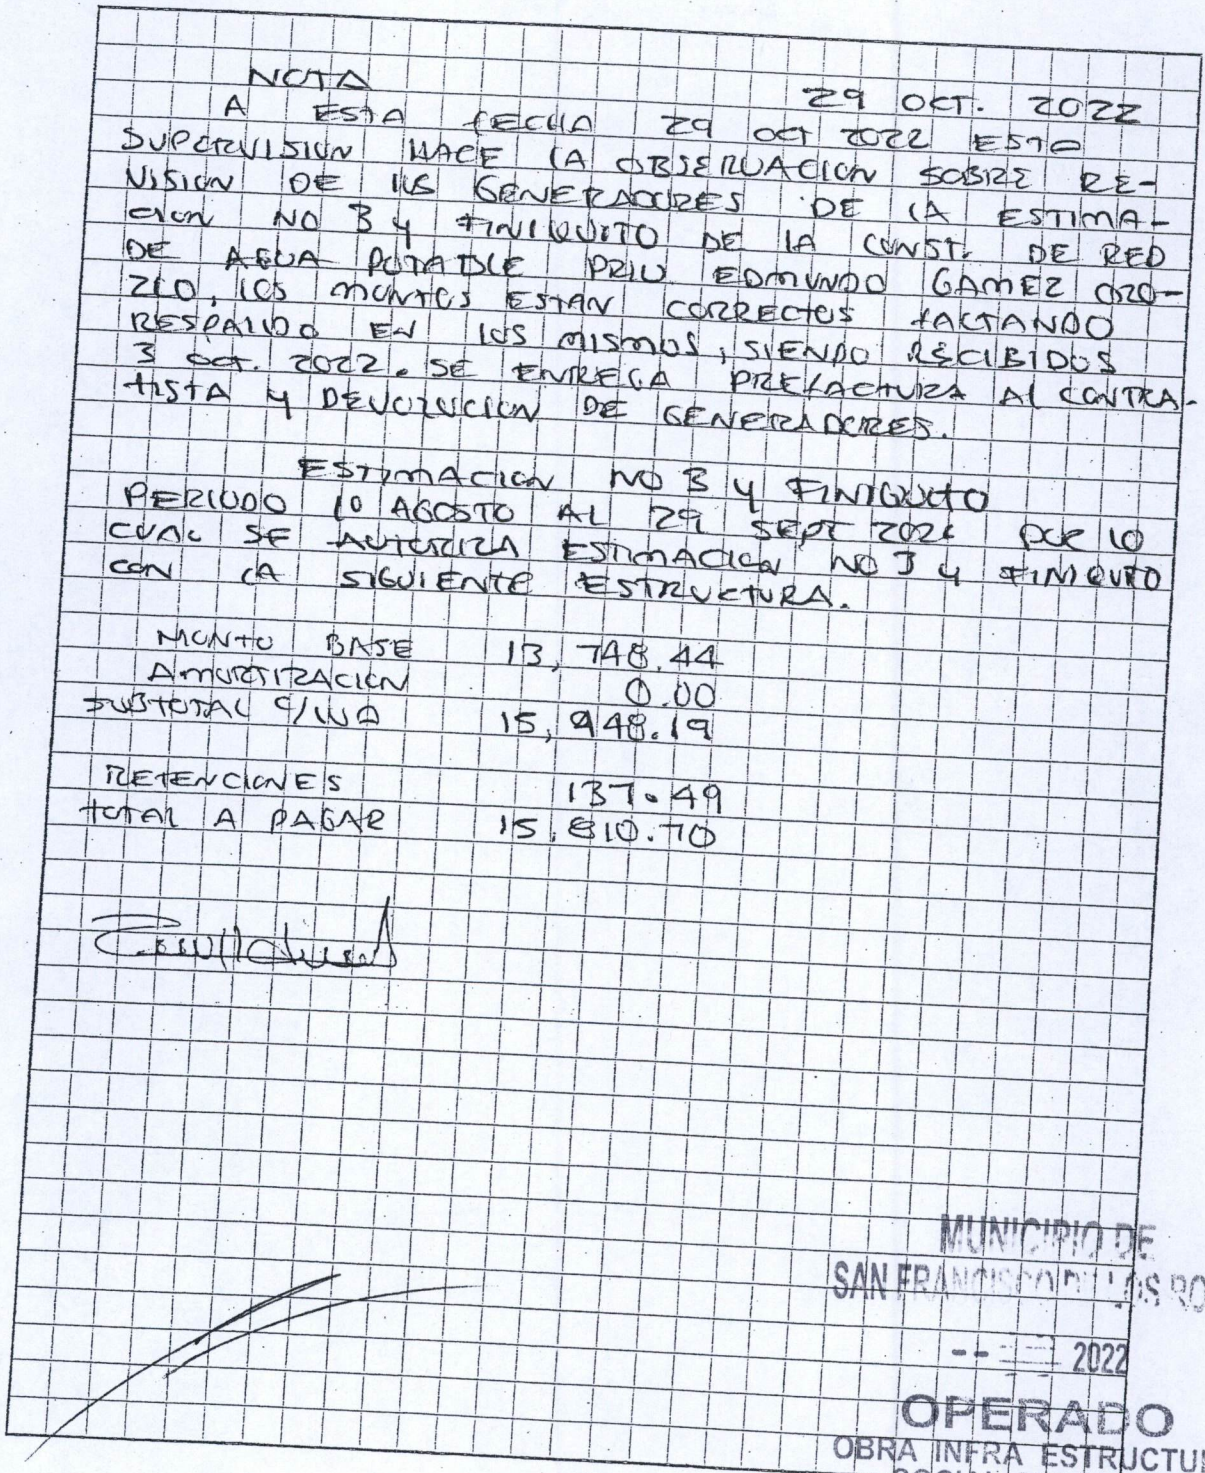 NOTA
29 OCT. 2022
A ESTA FECHA 29 OCT 2022 ESTA
SUPERVISION HACE LA OBSERVACION SOBRE RE-
VISION DE LOS GENERADORES DE LA ESTIMA-
CION NO 3 Y FINIQUITO DE LA CONST. DE RED
DE AGUA POTABLE PRIV. EDMUNDO GAMEZ ORO-
ZCO, LOS MONTOS ESTAN CORRECTOS FALTANDO
RESPALDO EN LOS MISMOS, SIENDO RECIBIDOS
3 OCT. 2022. SE ENTREGA PREFACTURA AL CONTRA-
TISTA Y DEVOLUCION DE GENERADORES.
ESTIMACION NO 3 Y FINIQUITO
PERIODO 10 AGOSTO AL 29 SEPT POR LO
CUAL SE AUTORIZA ESTIMACION NO 3 Y FINIQUITO
CON LA SIGUIENTE ESTRUCTURA.
MONTO BASE 13,748.44
AMORTIZACION 0.00
SUBTOTAL C/IVA 15,948.19
RETENCIONES 137.49
TOTAL A PAGAR 15,810.70
MUNICIPIO DE
SAN FRANCISCO DE LOS RO
-- 2022
OPERADO
OBRA INFRA ESTRUCTU